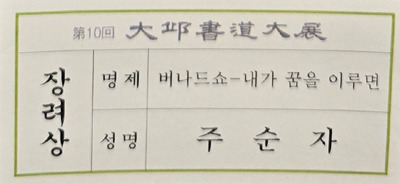 第10回 大邱書道大展
장려상
명제 버나드쇼-내가 꿈을 이루면
성명 주순자